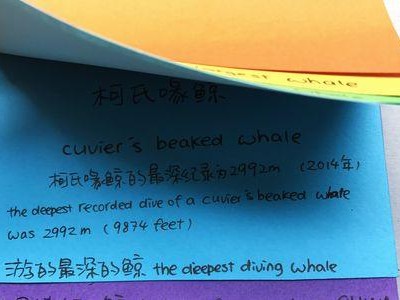 largest whale
柯氏喙鲸
cuvier's beaked whale
柯氏喙鲸的最深纪录为2992m (2014年)
the deepest recorded dive of a cuvier's beaked whale
was 2992m (9874 feet)
游的最深的鲸 the deepest diving whale